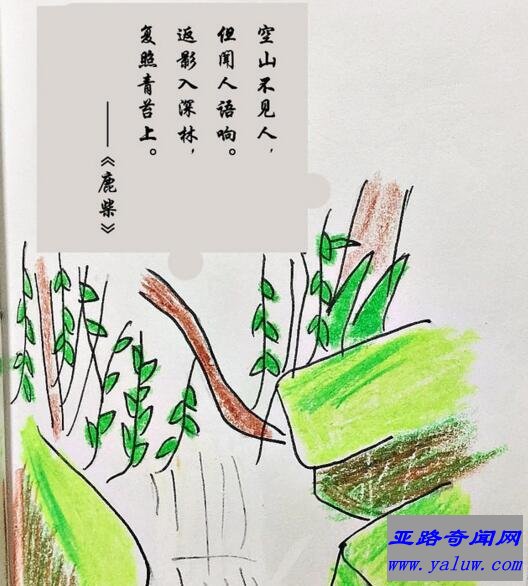 空山不见人，
但闻人语响。
返影入深林，
复照青苔上。
——《鹿柴》
亚路奇闻网
www.yaluw.com